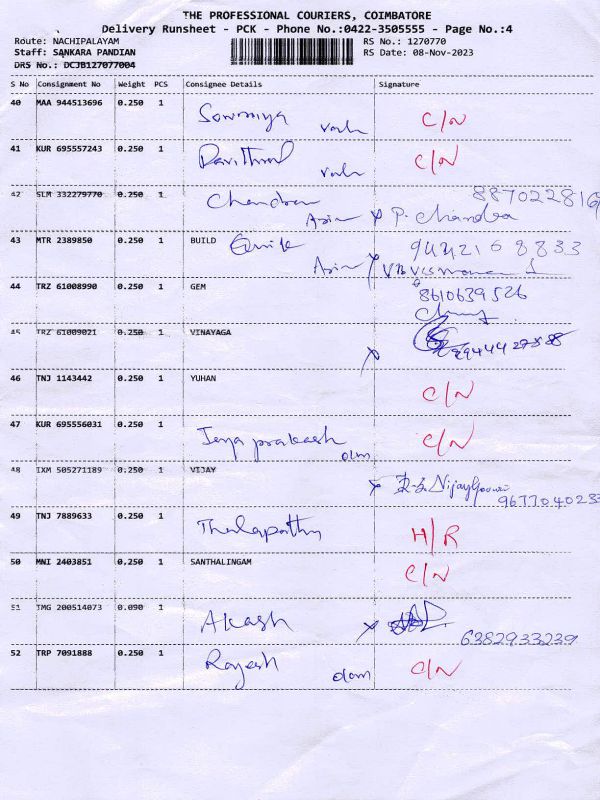 THE PROFESSIONAL COURIERS, COIMBATORE
Delivery Runsheet - PCK - Phone No.:0422-3505555 - Page No.:4
Route: NACHIPALAYAM RS No.: 1270770
Staff: SANKARA PANDIAN RS Date: 08-Nov-2023
DRS No.: DCJB127077004
S No Consignment No Weight PCS Consignee Details Signature
40 MAA 944513696 0.250 1 Sowmiya C/N
41 KUR 695557243 0.250 1 C/N
42 SLM 332279770 0.250 1 Chandran 887022816
P. Chandra
43 MTR 2389850 0.250 1 BUILD 9442168833
44 TRZ 61008990 0.250 1 GEM 8610639526
45 TRZ 61009021 0.250 1 VINAYAGA
46 TNJ 1143442 0.250 1 YUHAN C/N
47 KUR 695556031 0.250 1 Jeya prakash C/N
48 IXM 505271189 0.250 1 VIJAY
49 TNJ 7889633 0.250 1 Thalapathy H/R
50 MNI 2403851 0.250 1 SANTHALINGAM C/N
51 TMG 200514073 0.090 1 Akash
6382933239
52 TRP 7091888 0.250 1 Rajesh C/N